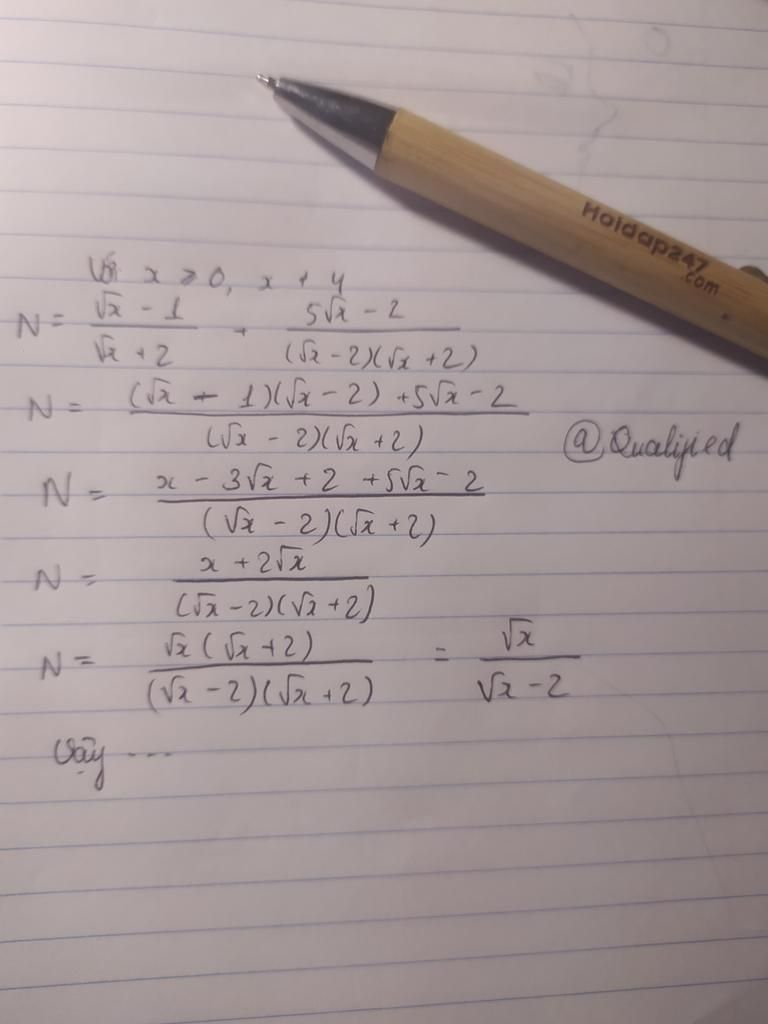 Hoidap247
.com
Với x ≥ 0, x ≠ 4
N = (√x - 1)/(√x + 2) + (5√x - 2)/((√x - 2)(√x + 2))
N = ((√x - 1)(√x - 2) + 5√x - 2)/((√x - 2)(√x + 2))
@Qualified
N = (x - 3√x + 2 + 5√x - 2)/((√x - 2)(√x + 2))
N = (x + 2√x)/((√x - 2)(√x + 2))
N = (√x(√x + 2))/((√x - 2)(√x + 2)) = √x/(√x - 2)
Vậy ....